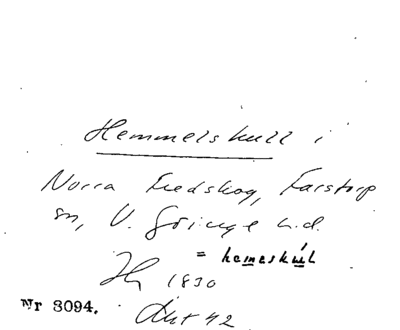 Hemmelskull i
Norra Fredskog, Farstorp
sn, V. Göinge h.d.
= hemeskúl
1830
Nr 3094.
42